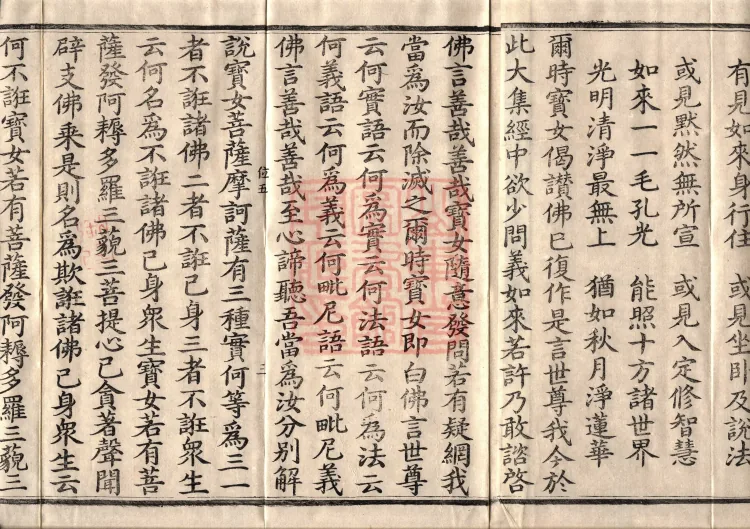 有見如來身行住　或見坐臥及說法
或見黙然無所宣　或見入定修智慧
如來一一毛孔光　能照十方諸世界
光明清淨最無上　猶如秋月淨蓮華
爾時寶女偈讃佛已復作是言世尊我今於
此大集經中欲少問義如來若許乃敢諮啓
佛言善哉善哉寶女隨意發問若有疑網我
當爲汝而除滅之爾時寶女即白佛言世尊
云何實語云何爲實云何法語云何爲法云
何義語云何爲義云何毗尼語云何毗尼義
佛言善哉善哉至心諦聽吾當爲汝分别解
說寶女菩薩摩訶薩有三種實何等爲三一
者不誑諸佛二者不誑己身三者不誑衆生
云何名爲不誑諸佛己身衆生寶女若有菩
薩發阿耨多羅三藐三菩提心已貪著聲聞
辟支佛乘是則名爲欺誑諸佛己身衆生云
何不誑寶女若有菩薩發阿耨多羅三藐三